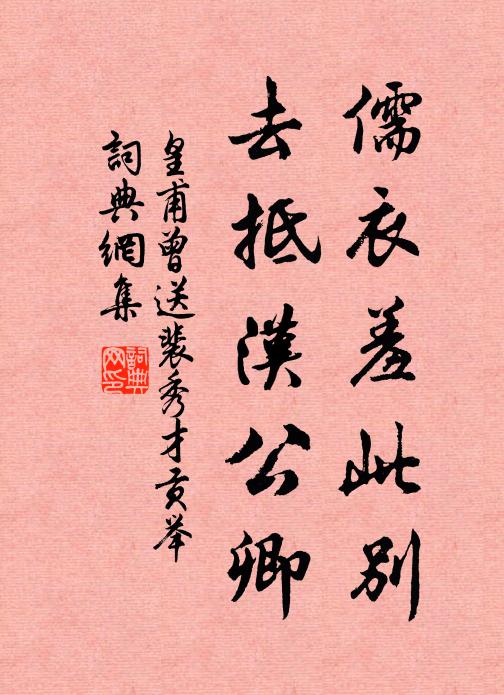 儒衣羞此别
去抵漢公卿
皇甫曾送裴秀才贡举
詞典網集
詞典網印